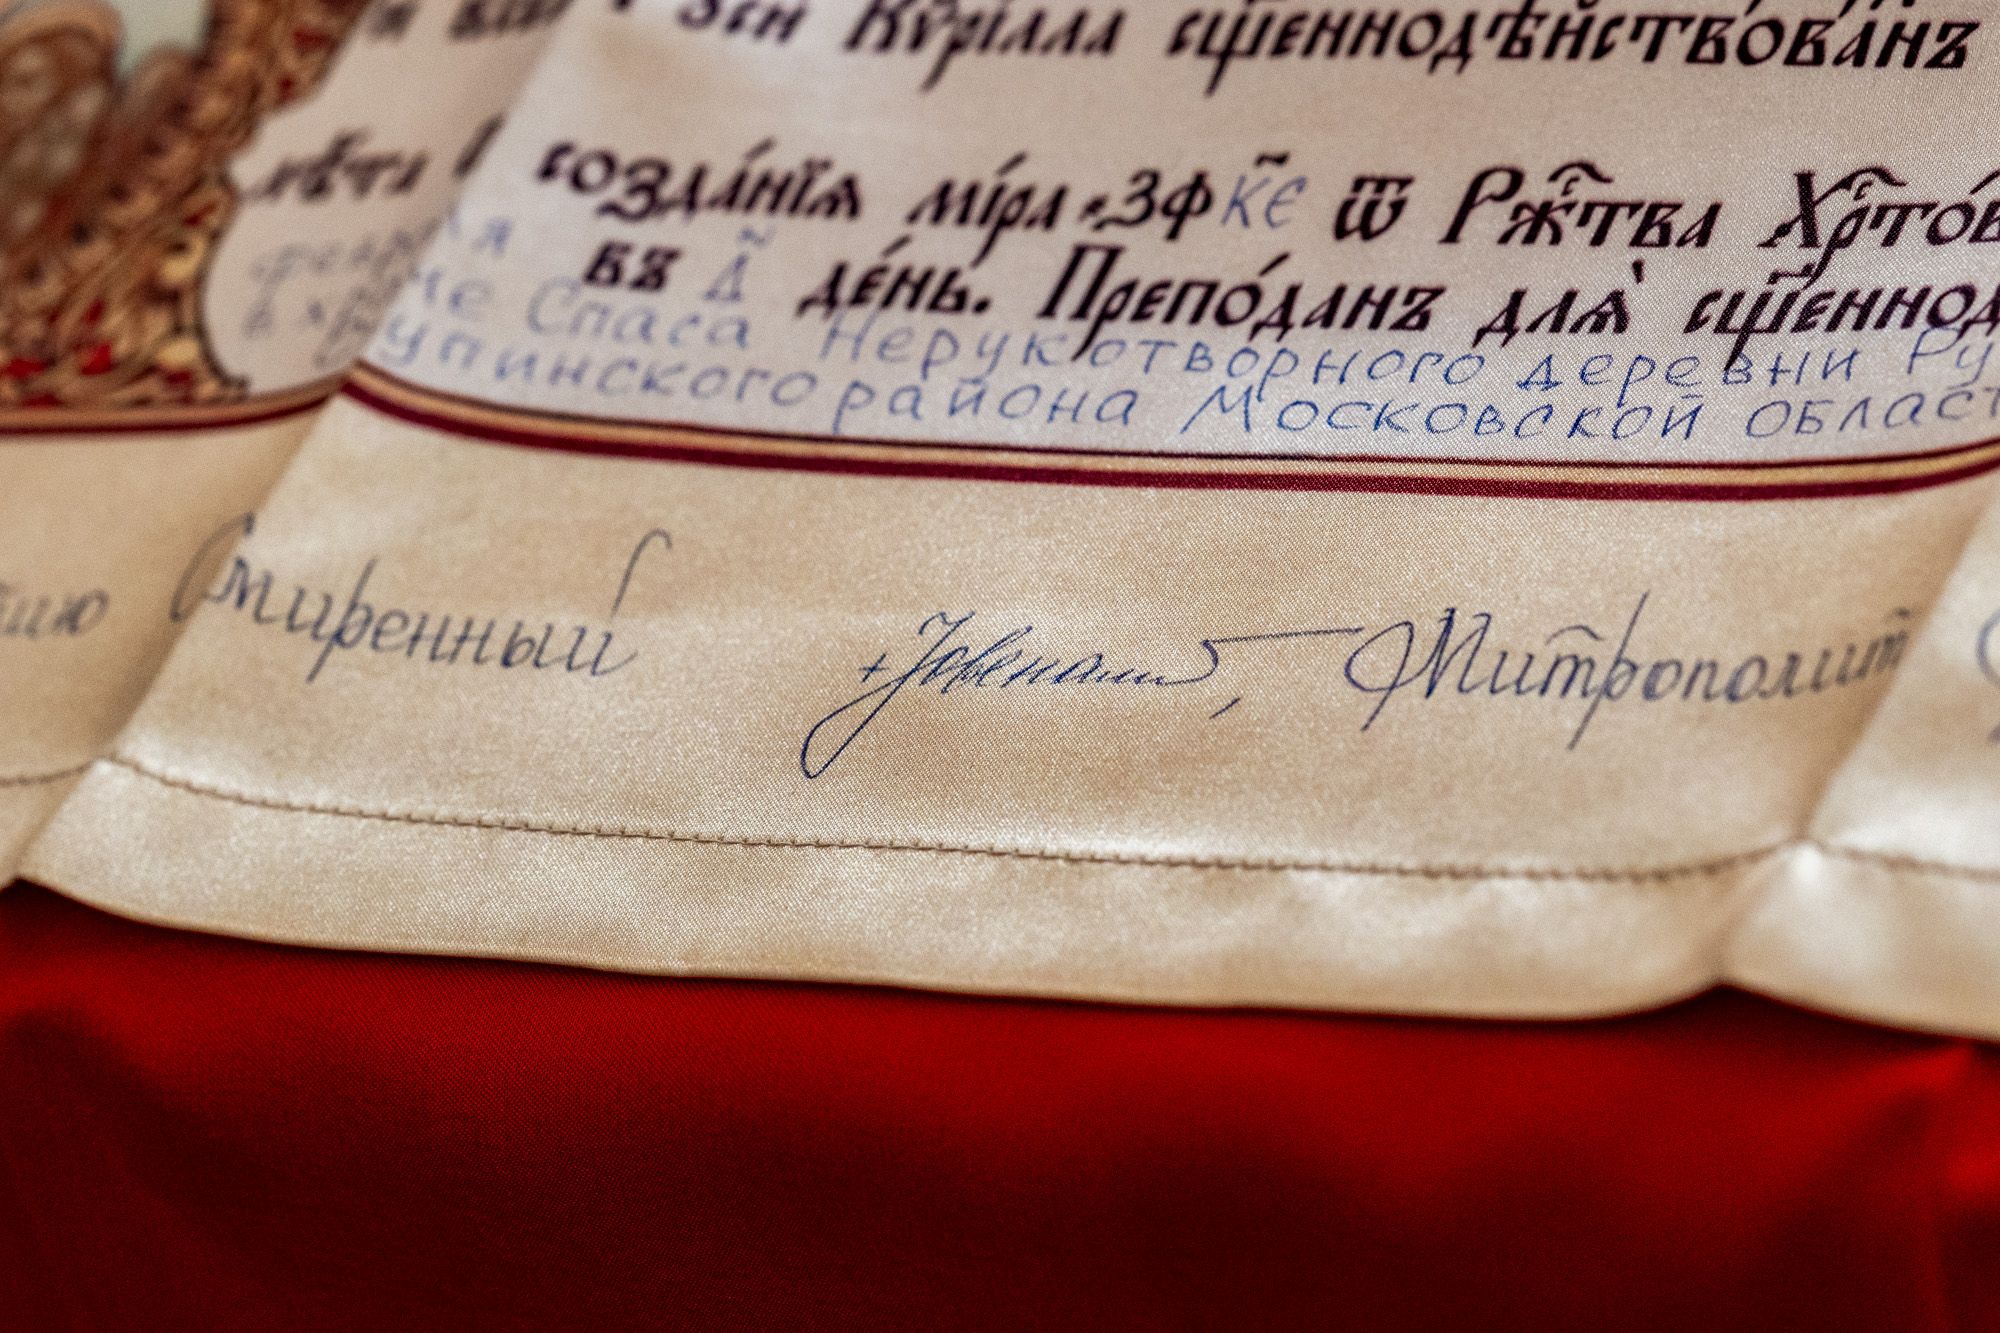 Кѷрі́лла сщ҃еннодѣ́йствованъ
лѣта созда́нїѧ мі́ра ҂ЗФК҃Є ѿ Рж҇тва Хрⷭ҇то́в
февраля въ Д҃ де́нь. Препо́данъ длѧ̀ сщ҃еннод
в храме Спаса Нерукотворного деревни Ру
упинского района Московской област
Смиренный +Ювеналий, Митрополит